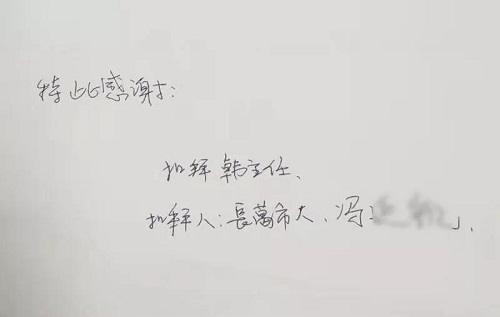 特此感谢:
扣拜 韩主任、
扣拜人:長葛市大、冯